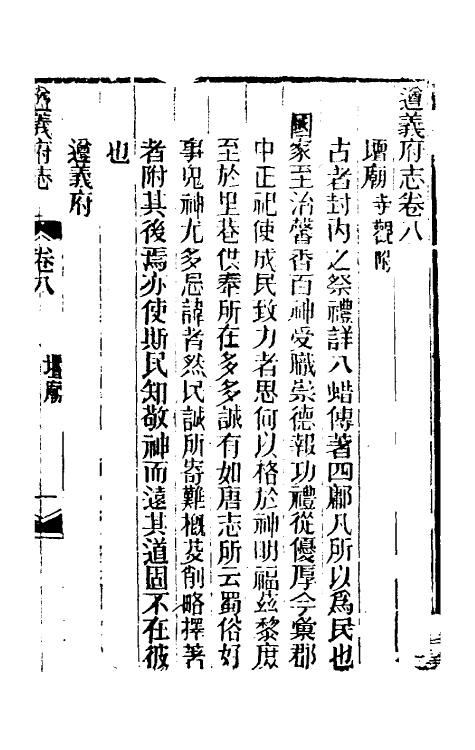 遵義府志卷八
壇廟寺觀附
古者封內之祭禮詳八蜡傳著四鄘凡所以爲民也
國家至治馨香百神受職崇德報功禮從優厚今彙郡
中正祀使成民致力者思何以格於神明福茲黎庶
至於里巷供奉所在多多誠有如唐志所云蜀俗好
事鬼神尤多忌諱者然民誠所寄難概芟削略擇著
者附其後焉亦使斯民知敬神而遠其道固不在彼
也
遵義府
遵義府志
卷八
壇廟
一